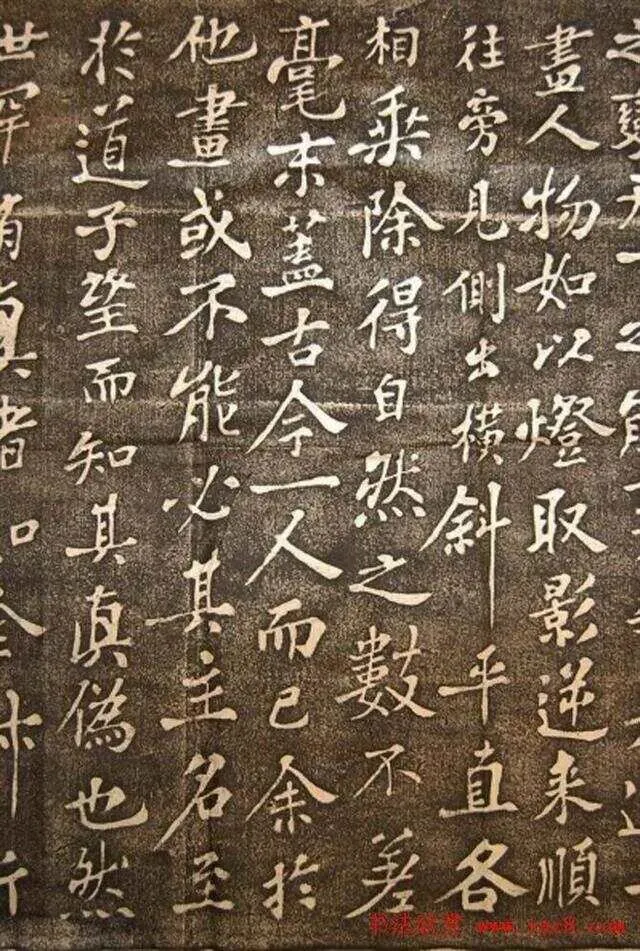 之變天下之能
畫人物如以燈取影逆来順
往旁見側出横斜平直各
相乘除得自然之數不差
毫末蓋古今一人而已余於
他畫或不能必其主名至
於道子望而知其真偽也然
世罕有真者如全叔所
书法欣赏 www.yac8.com